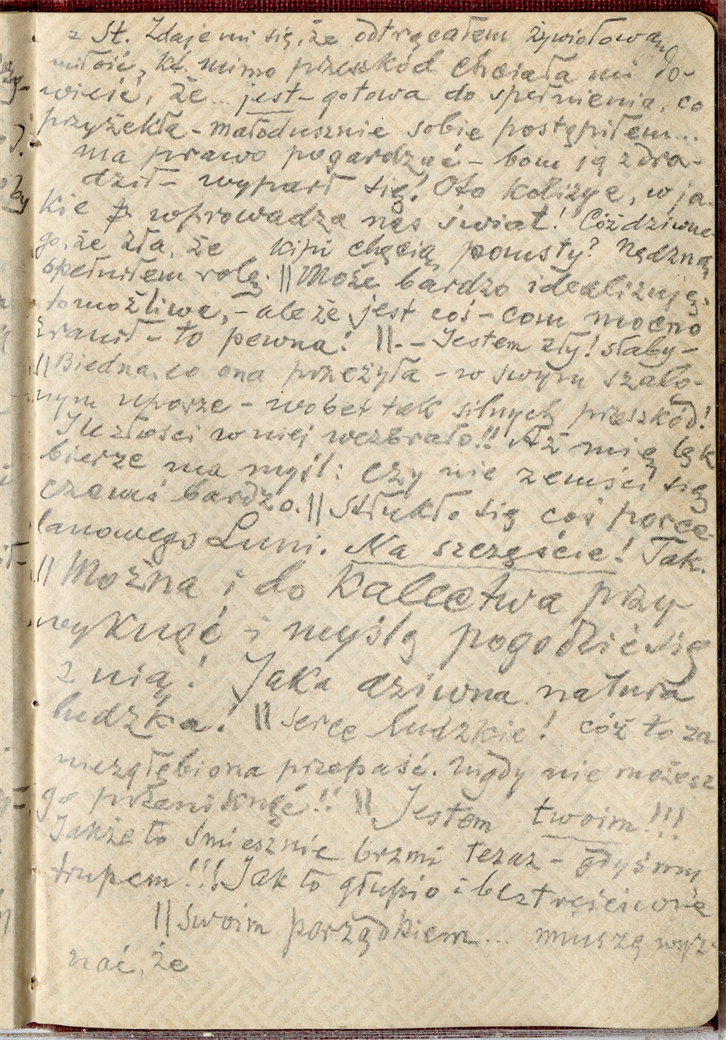 z St. Zdaje mi się, że odtrącałem żywiołową
miłość, kt. mimo przeszkód chciała mi do-
wieść, że .. jest - gotowa do spełnienia, co
przyżekła - małodusznie sobie postąpiłem...
ma prawo pogardzać - bom ją zdra-
dził - wyparł się! Oto kolizye, w ja-
kie wprowadza nas świat! Cóż dziwne-
go, że zła, że kipi chęcią pomsty? Nędzną
spełniłem rolę. || Może bardzo idealizuję,
to możliwe, - ale że jest coś - com mocno
zranił - to pewna! || - - Jestem zły! słaby -
|| Biedna, co ona przeżyła - w swym szalo-
nym uporze - wobec tak silnych przeszkód!
Ile złości w niej wezbrało!! Aż mię lęk
bierze na myśl: czy nie zemści się
czemś bardzo. || Stłukło się coś porce-
lanowego Luni. Na szczęście! Tak.
|| Można i do kalectwa przy-
wyknąć i myślą pogodzić się
z nią! Jaka dziwna natura
ludzka! || Serce ludzkie! cóż to za
niezgłębiona przepaść. Nigdy nie możesz
go przeniknąć!! || Jestem twoim!!!
Jakże to śmiesznie brzmi teraz - gdyśmy
trupem!!! Jak to głupio i beztreściowe
|| Swoim porządkiem... muszę wyz-
nać, że